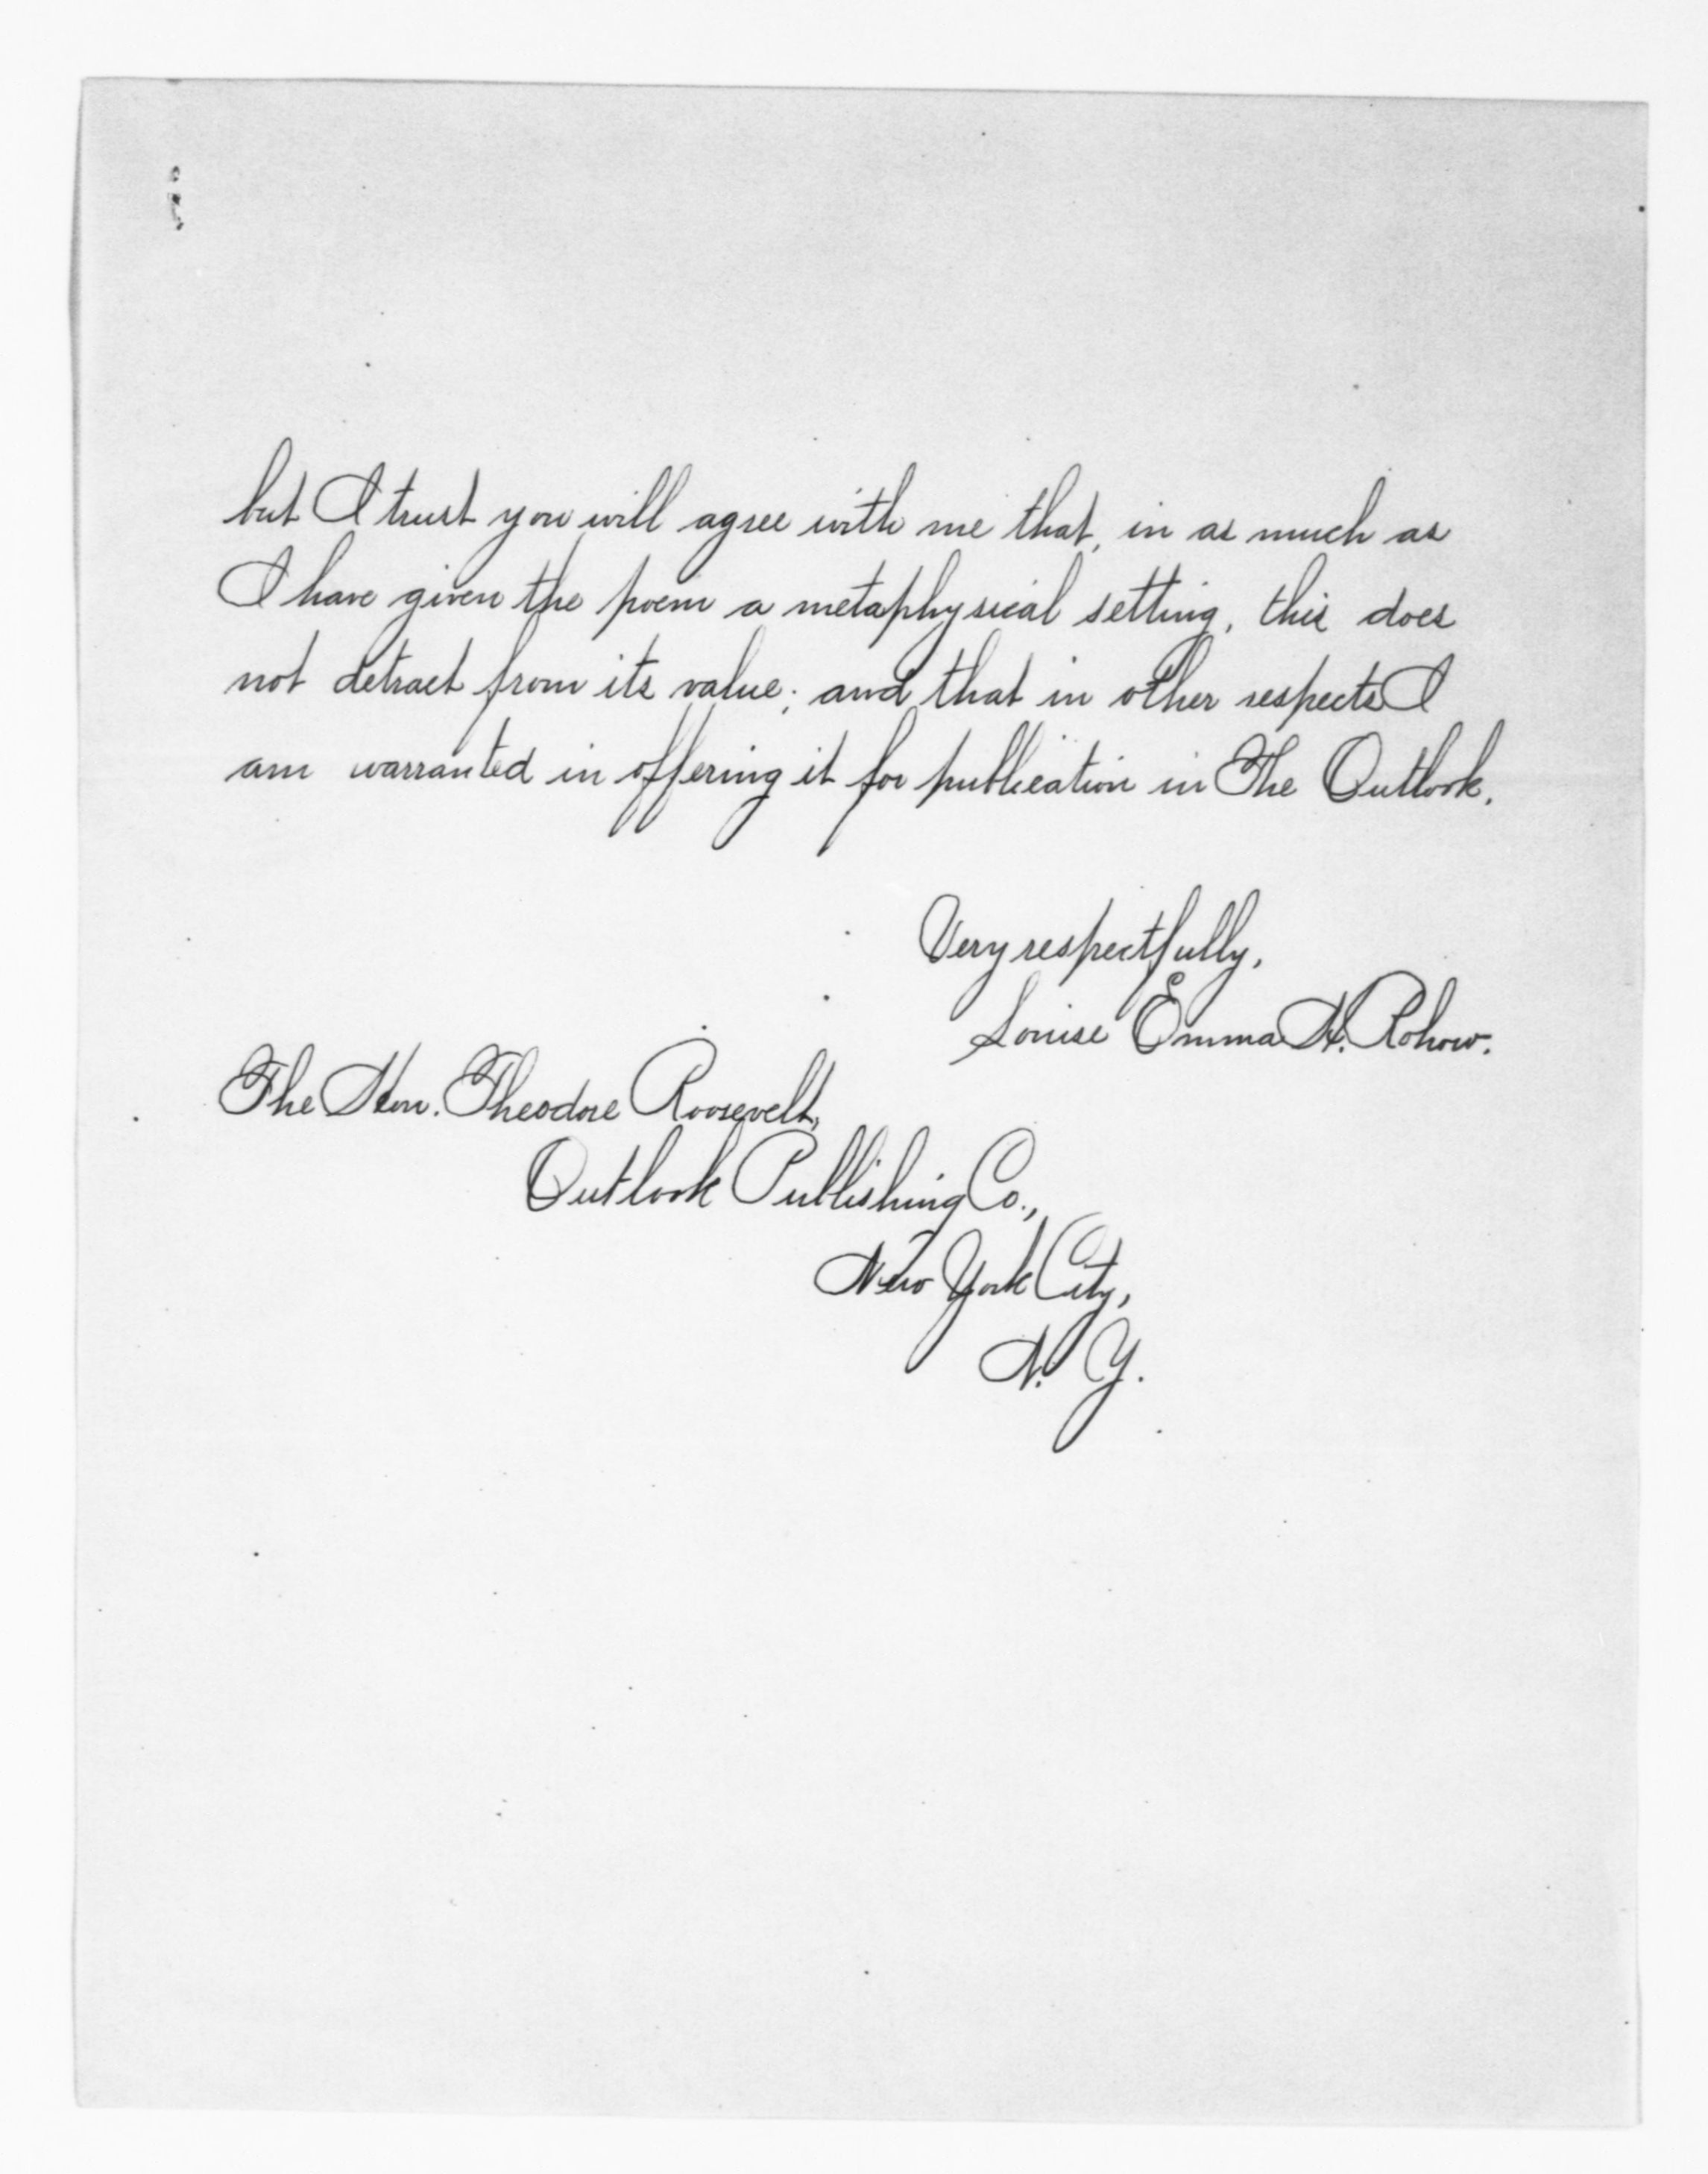 but I trust you will agree with me that, in as much as
I have given the poem a metaphysical setting, this does
not detract from its value; and that in other respects I
am warranted in offering it for publication in The Outlook.
Very respectfully,
Louise Emma H. Rohow.
The Hon. Theodore Roosevelt,
Outlook Publishing Co.,
New York City,
N. Y.